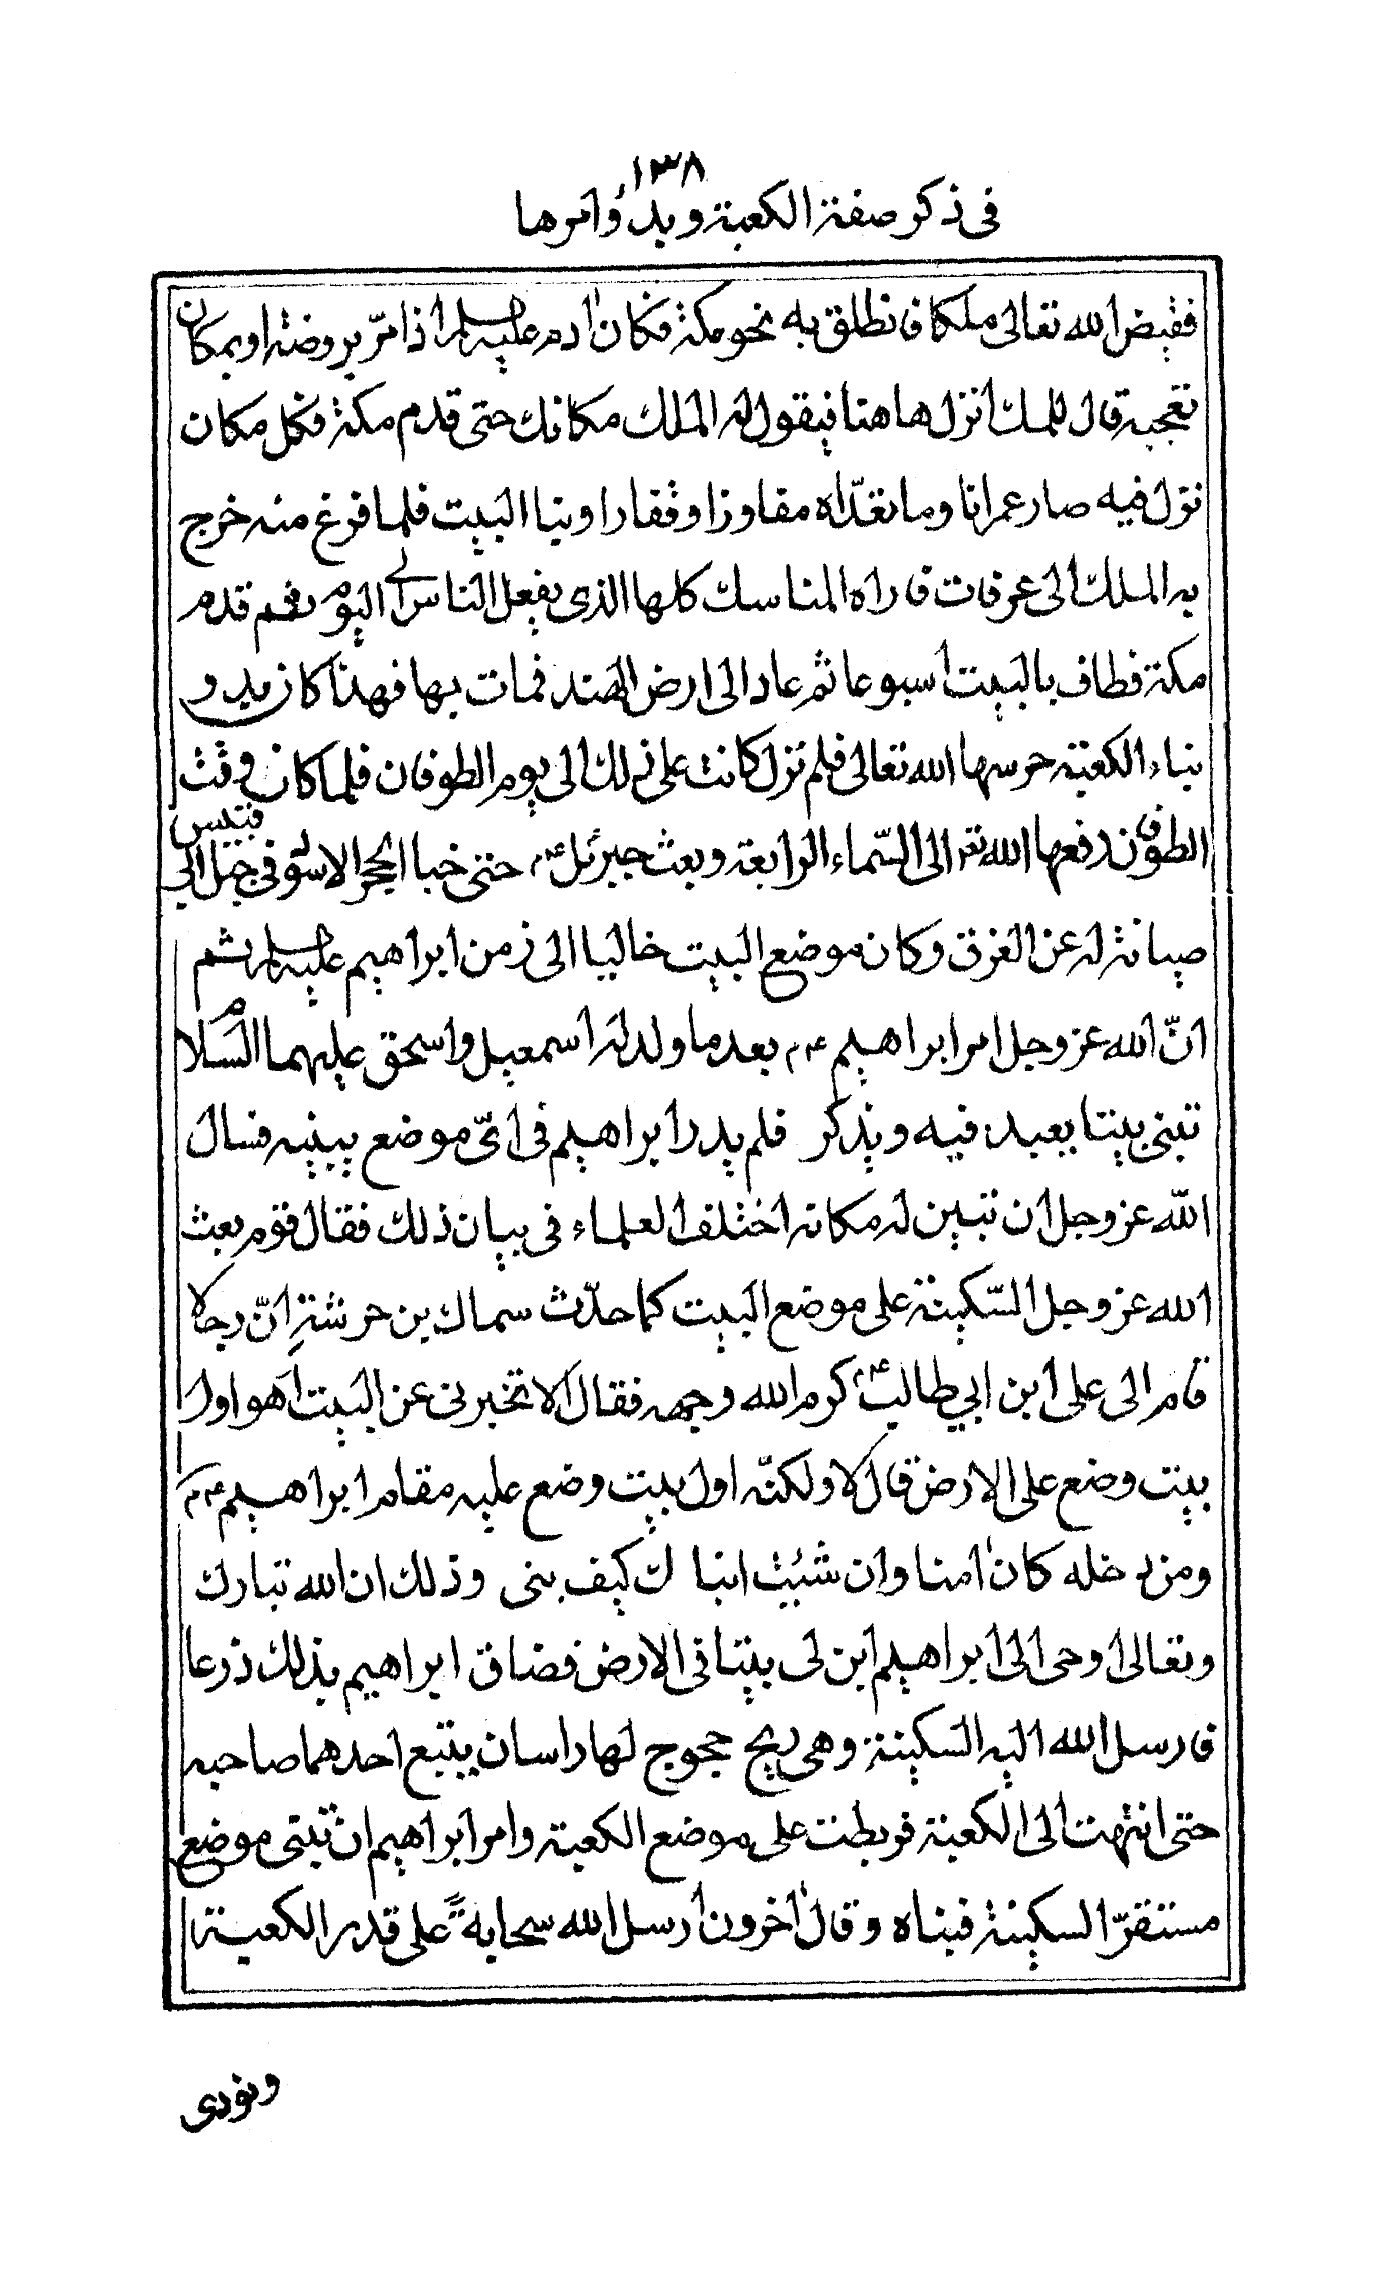 ١٣٨
فى ذكر صفة الكعبة وبدؤ امرها
فقيض الله تعالى ملكا فانطلق به نحو مكة فكان ادم عليه السلم اذا مرّ بروضة او بمكان
تعجبه قال للملك انزل هاهنا فيقول له الملك مكانك حتى قدم مكة فكل مكان
نزل فيه صار عمرانا وما تعدّاه مفاوزا وقفارا وبنا البيت فلما فرغ منه خرج
به الملك الى عرفات فاراه المناسك كلها الذى يفعل الناس الى اليوم ثم قدم
مكة فطاف بالبيت اسبوعا ثم عاد الى ارض الهند فمات بها فهذا كان بدو
بناء الكعبة حرسها الله تعالى فلم تزل كانت على ذلك الى يوم الطوفان فلما كان وقت
الطوفان رفعها الله تع الى السّماء الرابعة وبعث جبرئل ع م حتى خبا الحجر الاسود فى جبل ابى قبيس
صيانة له عن الغرق وكان موضع البيت خاليا الى زمن ابراهيم عليه السلم ثم
انّ الله عز وجل امر ابراهيم ع م بعد ما ولد له اسمعيل واسحق عليهما السلام
تبنى بيتا يعبد فيه ويذكر فلم يدر ابراهيم فى اىّ موضع يبنيه فسال
الله عز وجل ان تبين له مكانه اختلف العلماء فى بيان ذلك فقال قوم بعث
الله عز وجل السّكينة على موضع البيت كما حدّث سماك بن حرشةِ انّ رجلا
قام الى على ابن ابي طالب ع م كرم الله وجهه فقال الا تخبرنى عن البيت اهو اول
بيت وضع على الارض قال لا ولكنّه اول بيت وضع عليه مقام ابراهيم ع م
ومن دخله كان امنا وان شئيت انبا ك كيف بنى وذلك ان الله تبارك
وتعالى اوحى الى ابراهيم ابن لى بيتا فى الارض فضاق ابراهيم بذلك ذرعا
فارسل الله اليه السكينة وهى ريح حجوج لها راسان يتبع احدهما صاحبه
حتى انتهت الى الكعبة فربطت على موضع الكعبة وامر ابراهيم ان تبتى موضع
مستقرّ السكينة فبناه وقال اخرون ارسل الله سحابة على قدر الكعبة
ونودى